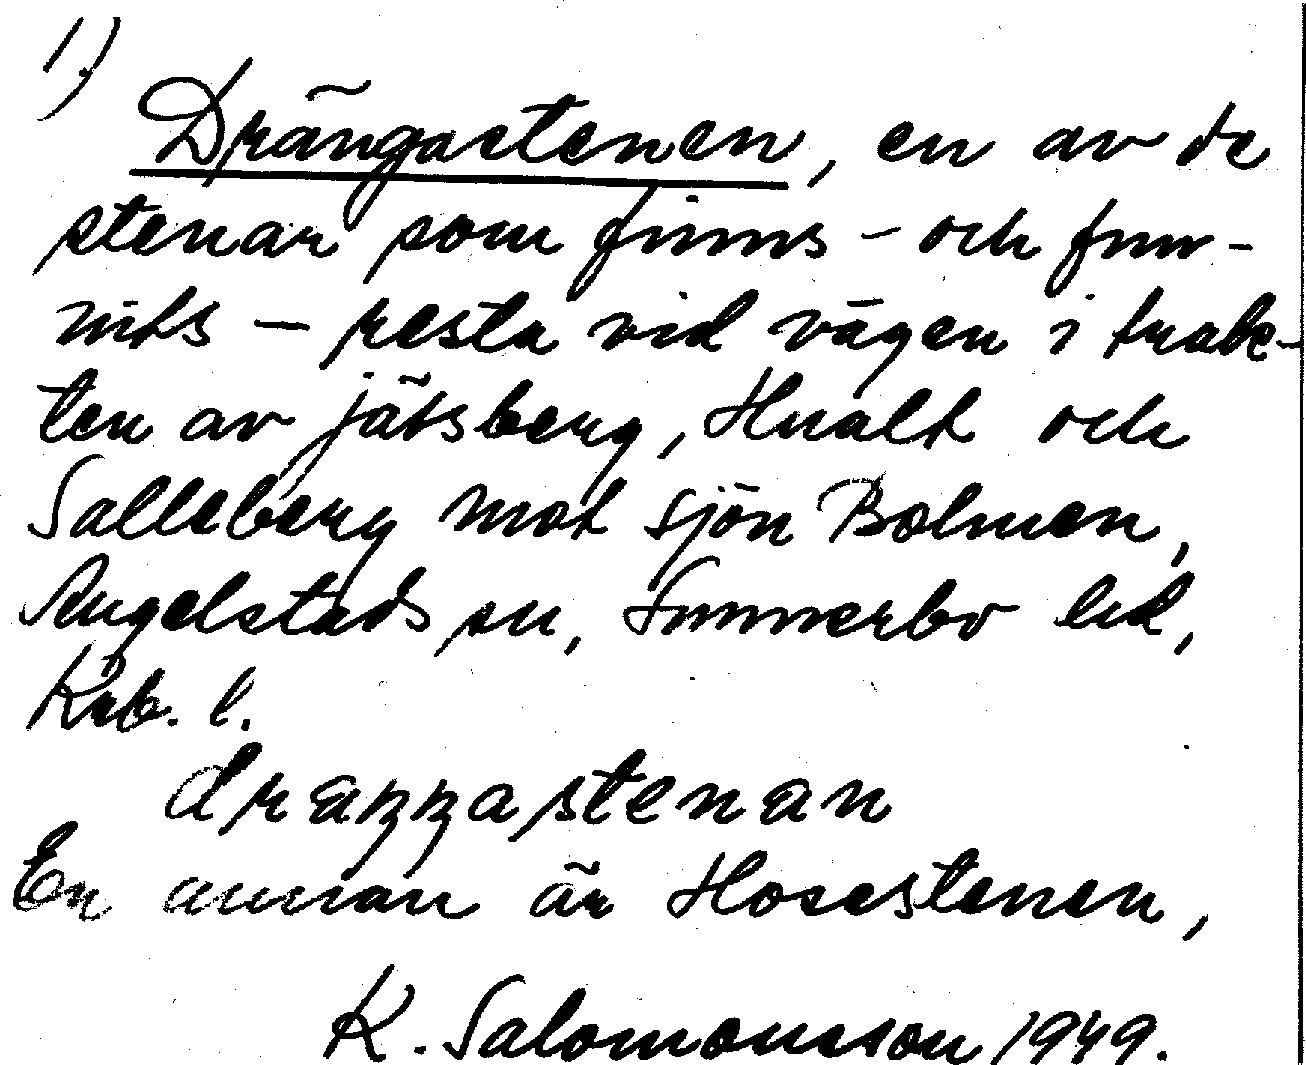 1.)
Drängastenen, en av de
stenar som finns - och fun-
nits - resta vid vägen i trak-
ten av Jätsberg, Hualt och
Salleberg mot sjön Bolmen,
Angelstads sn, Sunnerbo hd,
Krb. l.
dräŋŋastenan
En annan är Hosestenen,
K. Salomonsson 1949.